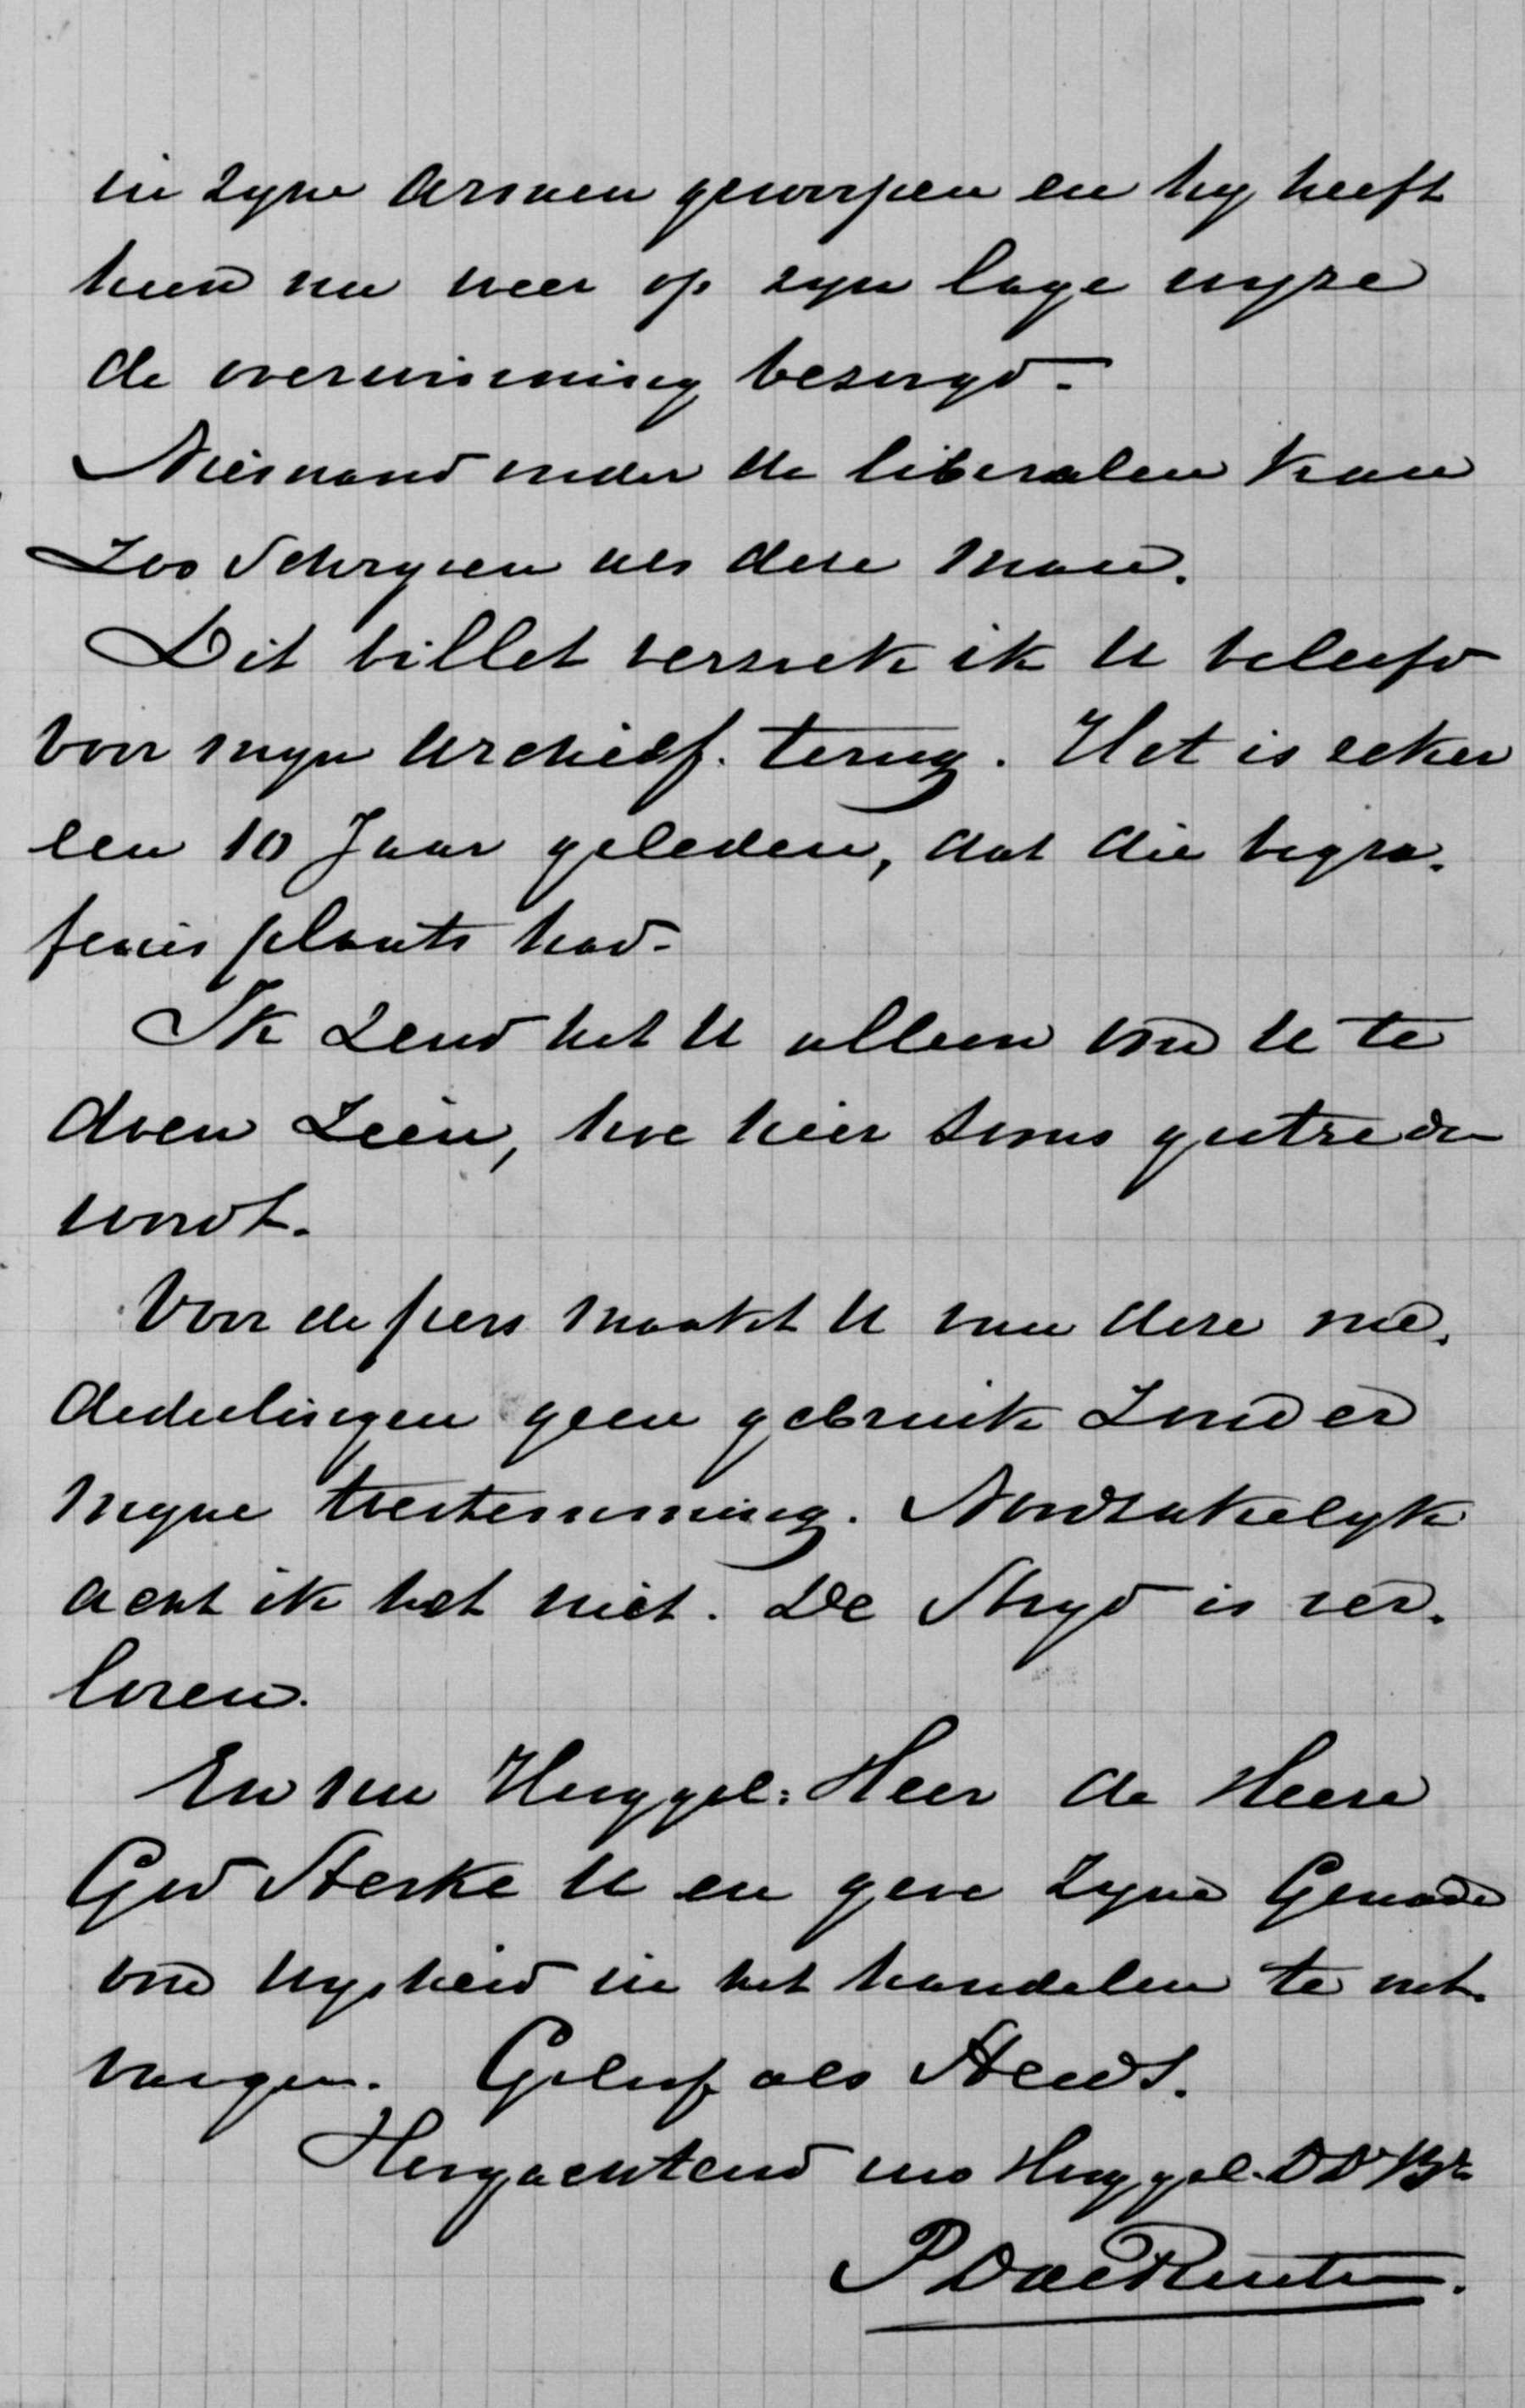 in zyne armen geworpen en hy heeft
hun nu weer op zyn lage wyze
de overwinning bezorgd.
Niemand onder de liberalen kan
Zoo Schryven als deze man.
Dit billet verzoek ik U beleefd
voor myn Archief. terug. Het is zeker
een 10 Jaar geleden, dat die begra-
fenis plaats had.
Ik Zend het U alleen om U te
doen Zien, hoe hier soms opgetreden
wordt.
Voor de pers maakt U van deze me-
dedeelingen geen gebruik Zonder
myne toestemming. Noodzakelyk
acht ik het niet. De Stryd is ver-
loren.
En nu Hooggel: Heer de Heere
God Sterke U en geve Zyne Genade
om wysheid in het handelen te ont-
vangen. Geloof als Steeds.
Hoogachtend uw Hooggel. DD Br